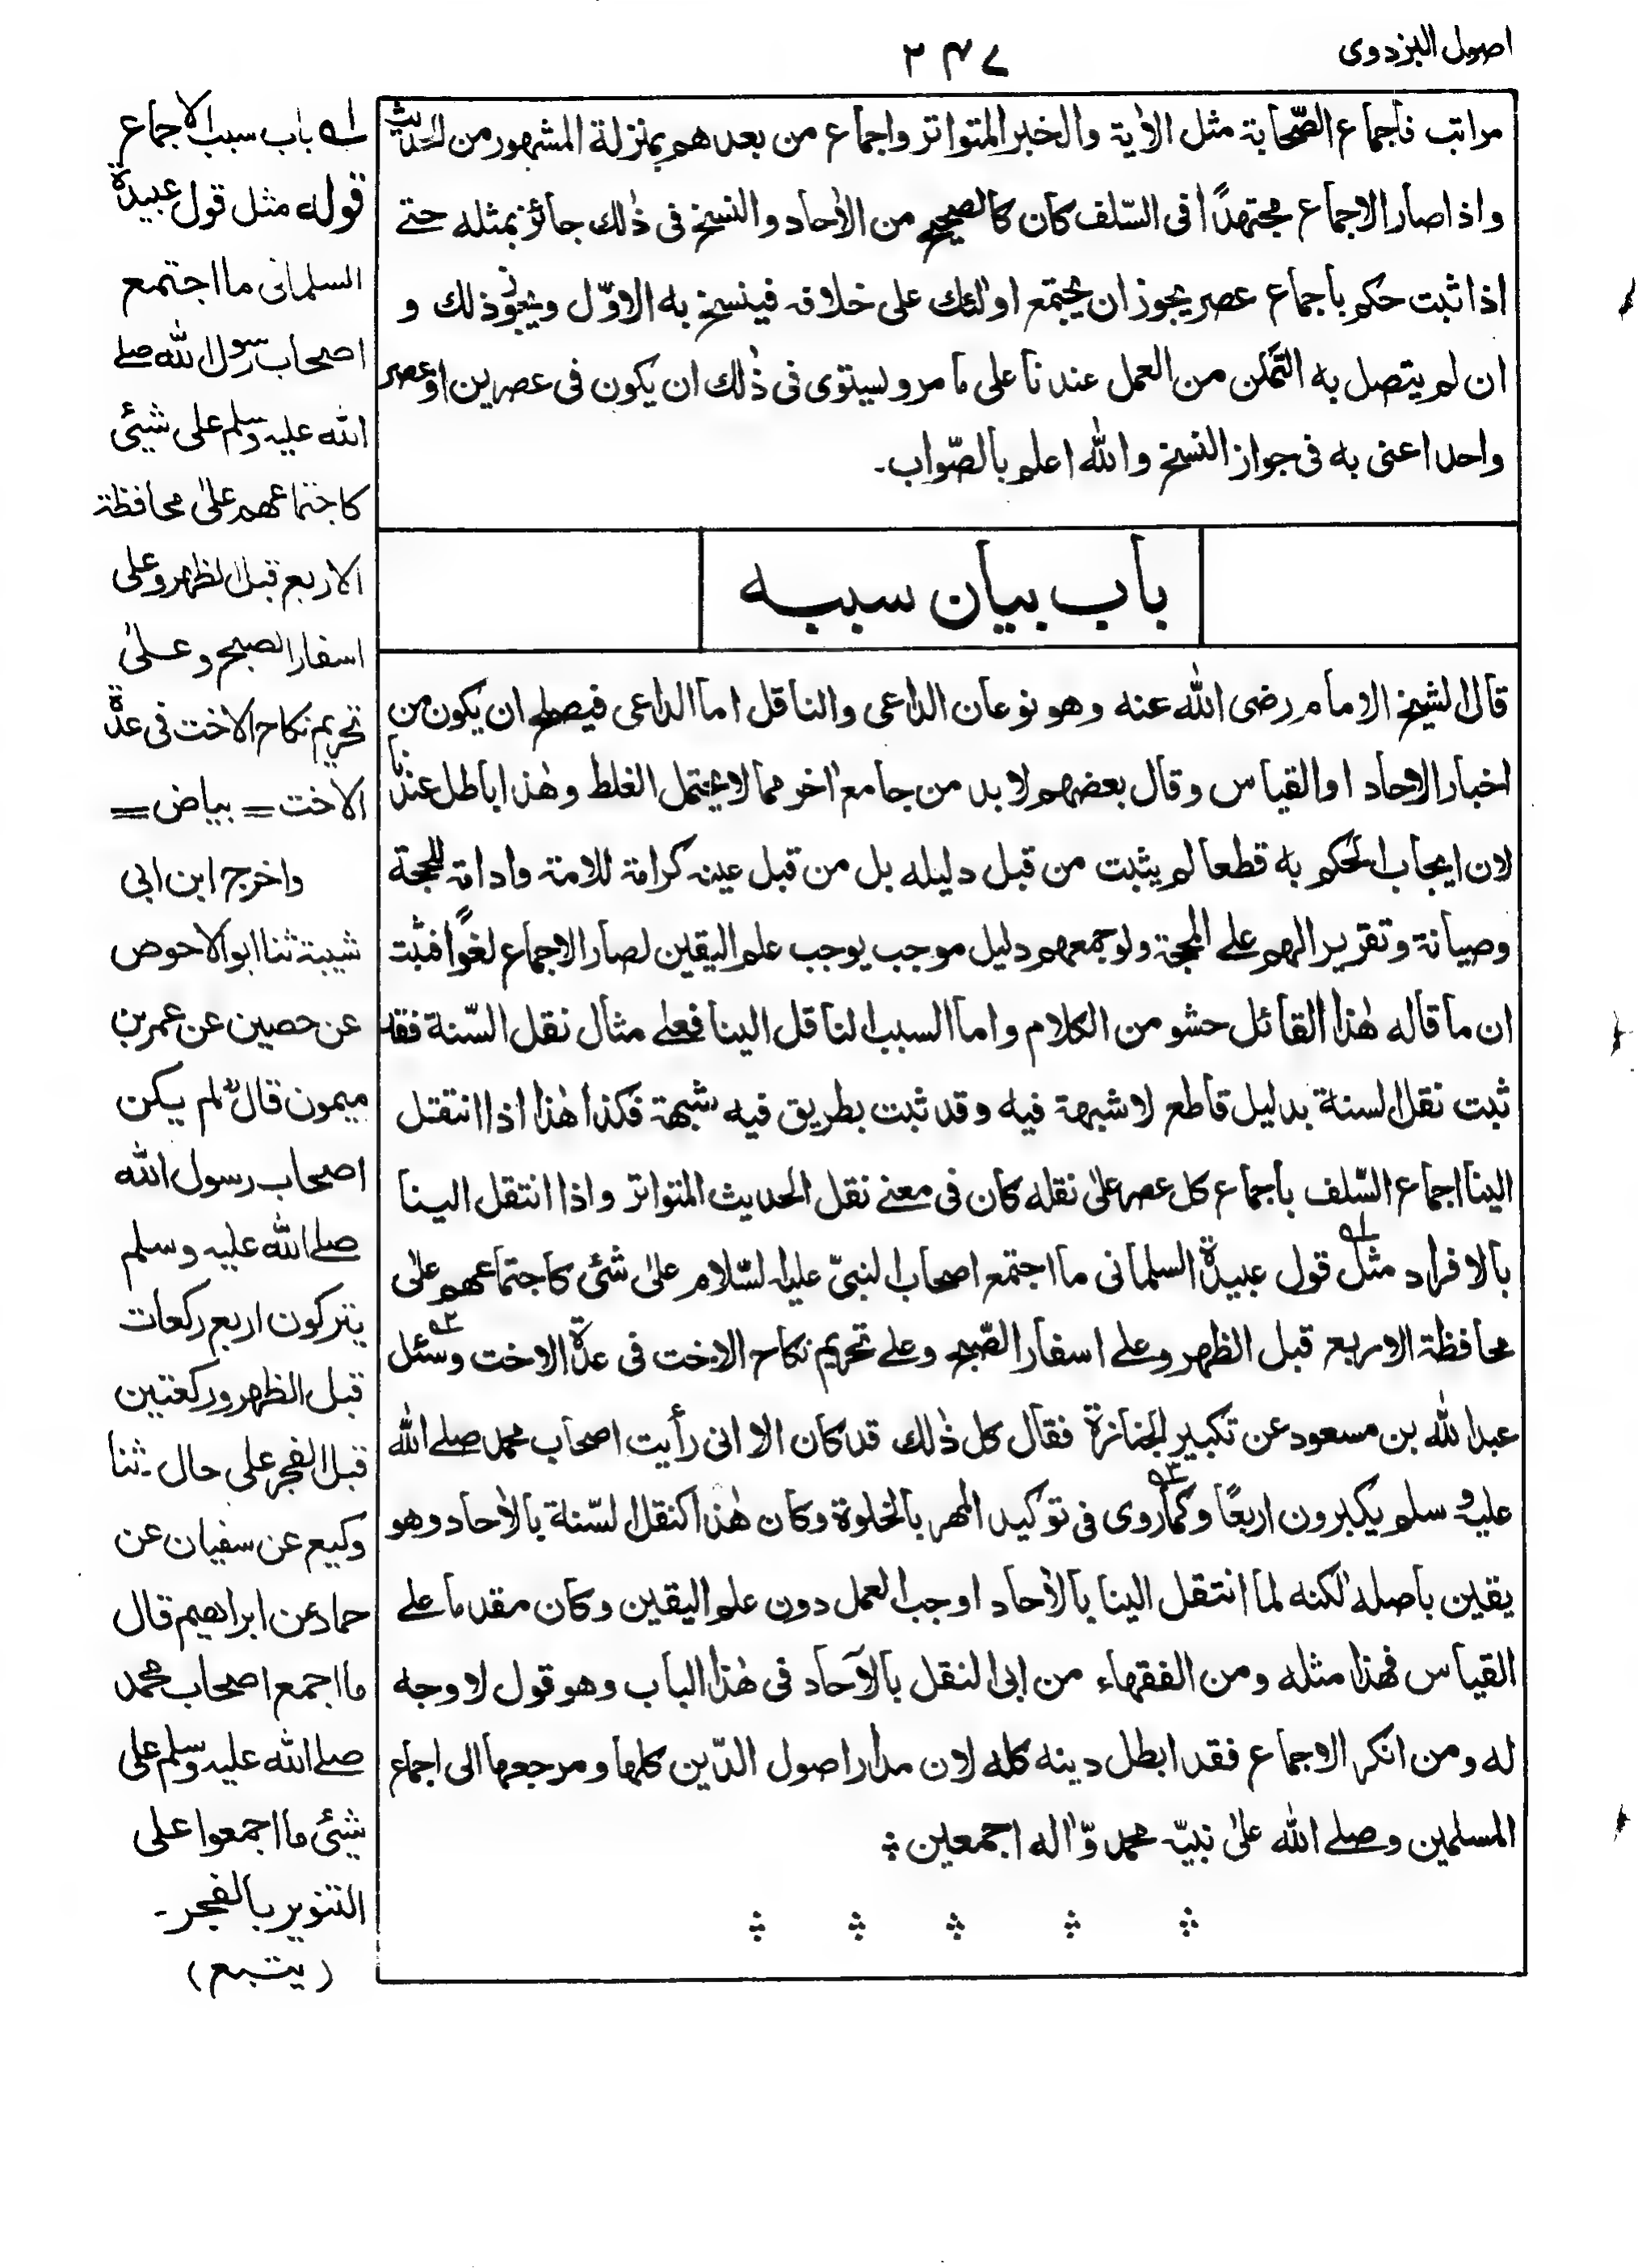 اصول البزدوی
۲۴۷
مراتب فاجماع الصّحابة مثل الأية والخبر المتواتر واجماع من بعدهم بمنزلة المشهور من الحديث
واذا صار الاجماع مجتهدًا فى السّلف كان كالصحيح من الأحاد والنسخ فى ذٰلك جائز بمثله حتے
اذا ثبت حكم باجماع عصر يجوز ان يجتمع اولٰئك على خلافه فينسخ به الاوّل ويجوز ذلك و
ان لم يتصل به التمكن من العمل عندنا على ما مر ويستوى فى ذٰلك ان يكون فى عصرين او عصر
واحد اعنى به فى جواز النسخ والله اعلم بالصّواب۔
باب بيان سببه
قال الشيخ الامام رضى الله عنه وهو نوعان الداعى والناقل اما الداعى فيصلح ان يكون من
اخبار الاحاد او القياس وقال بعضهم لا بد من جامع اٰخر مما لا يحتمل الغلط وهٰذا باطل عندنا
لان ايجاب الحكم به قطعا لم يثبت من قبل دليله بل من قبل عينه كرامة للامة وادامة للحجة
وصيانة وتقريرا لهم علے المحجة ولو جمعهم دليل موجب يوجب علم اليقين لصار الاجماع لغوًا فثبت
ان ما قاله هٰذا القائل حشو من الكلام واما السبب الناقل الينا فعلے مثال نقل السّنة فقد
ثبت نقل السنة بدليل قاطع لا شبهة فيه وقد ثبت بطريق فيه شبهة فكذا هٰذا اذا انتقل
الينا اجماع السّلف باجماع كل عصر علٰى نقله كان فى معنے نقل الحديث المتواتر واذا انتقل الينا
بالافراد مثل ۱ قول عبيدة السلمانى ما اجتمع اصحاب النبىّ عليه السّلام علٰى شئ كاجتماعهم علٰى
محافظة الاربع قبل الظهر وعلے اسفار الصّبح وعلے تحريم نكاح الاخت فى عدّة الاخت ۲ وسئل
عبد الله بن مسعود عن تكبير الجنازة فقال كل ذٰلك قد كان الا انى رأيت اصحاب محمد صلے الله
عليه وسلم يكبرون اربعًا وكما ۳ روى فى توكيد المهر بالخلوة وكان هٰذا كنقل السّنة بالأحاد وهو
يقين باصله لٰكنه لما انتقل الينا بالأحاد اوجب العمل دون علم اليقين وكان مقدما علے
القياس فهٰذا مثله ومن الفقهاء من ابى النقل بالآحاد فى هٰذا الباب وهو قول لا وجه
له ومن انكر الاجماع فقد ابطل دينه كله لان مدار اصول الدّين كلها ومرجعها الى اجماع
المسلمين وصلے الله علٰى نبيّه محمد وّاٰله اجمعين ؞
؞ ؞ ؞ ؞ ؞
۱ باب سبب الاجماع
قوله مثل قول عبيدة
السلمانى ما اجتمع
اصحاب رسول الله صلے
الله عليه وسلم على شيئ
كاجتماعهم علٰى محافظة
الاربع قبل الظهر وعلى
اسفار الصبح وعلٰى
تحريم نكاح الاخت فى عدّة
الاخت = بياض =
واخرج ابن ابى
شيبة ثنا ابو الاحوص
عن حصين عن عمر بن
ميمون قال لم يكن
اصحاب رسول الله
صلے الله عليه وسلم
يتركون اربع ركعات
قبل الظهر وركعتين
قبل الفجر على حال۔ ثنا
وكيع عن سفيان عن
حماد عن ابراهيم قال
ما اجمع اصحاب محمد
صلے الله عليه وسلم على
شيئ ما اجمعوا على
التنوير بالفجر۔
(يتبع)